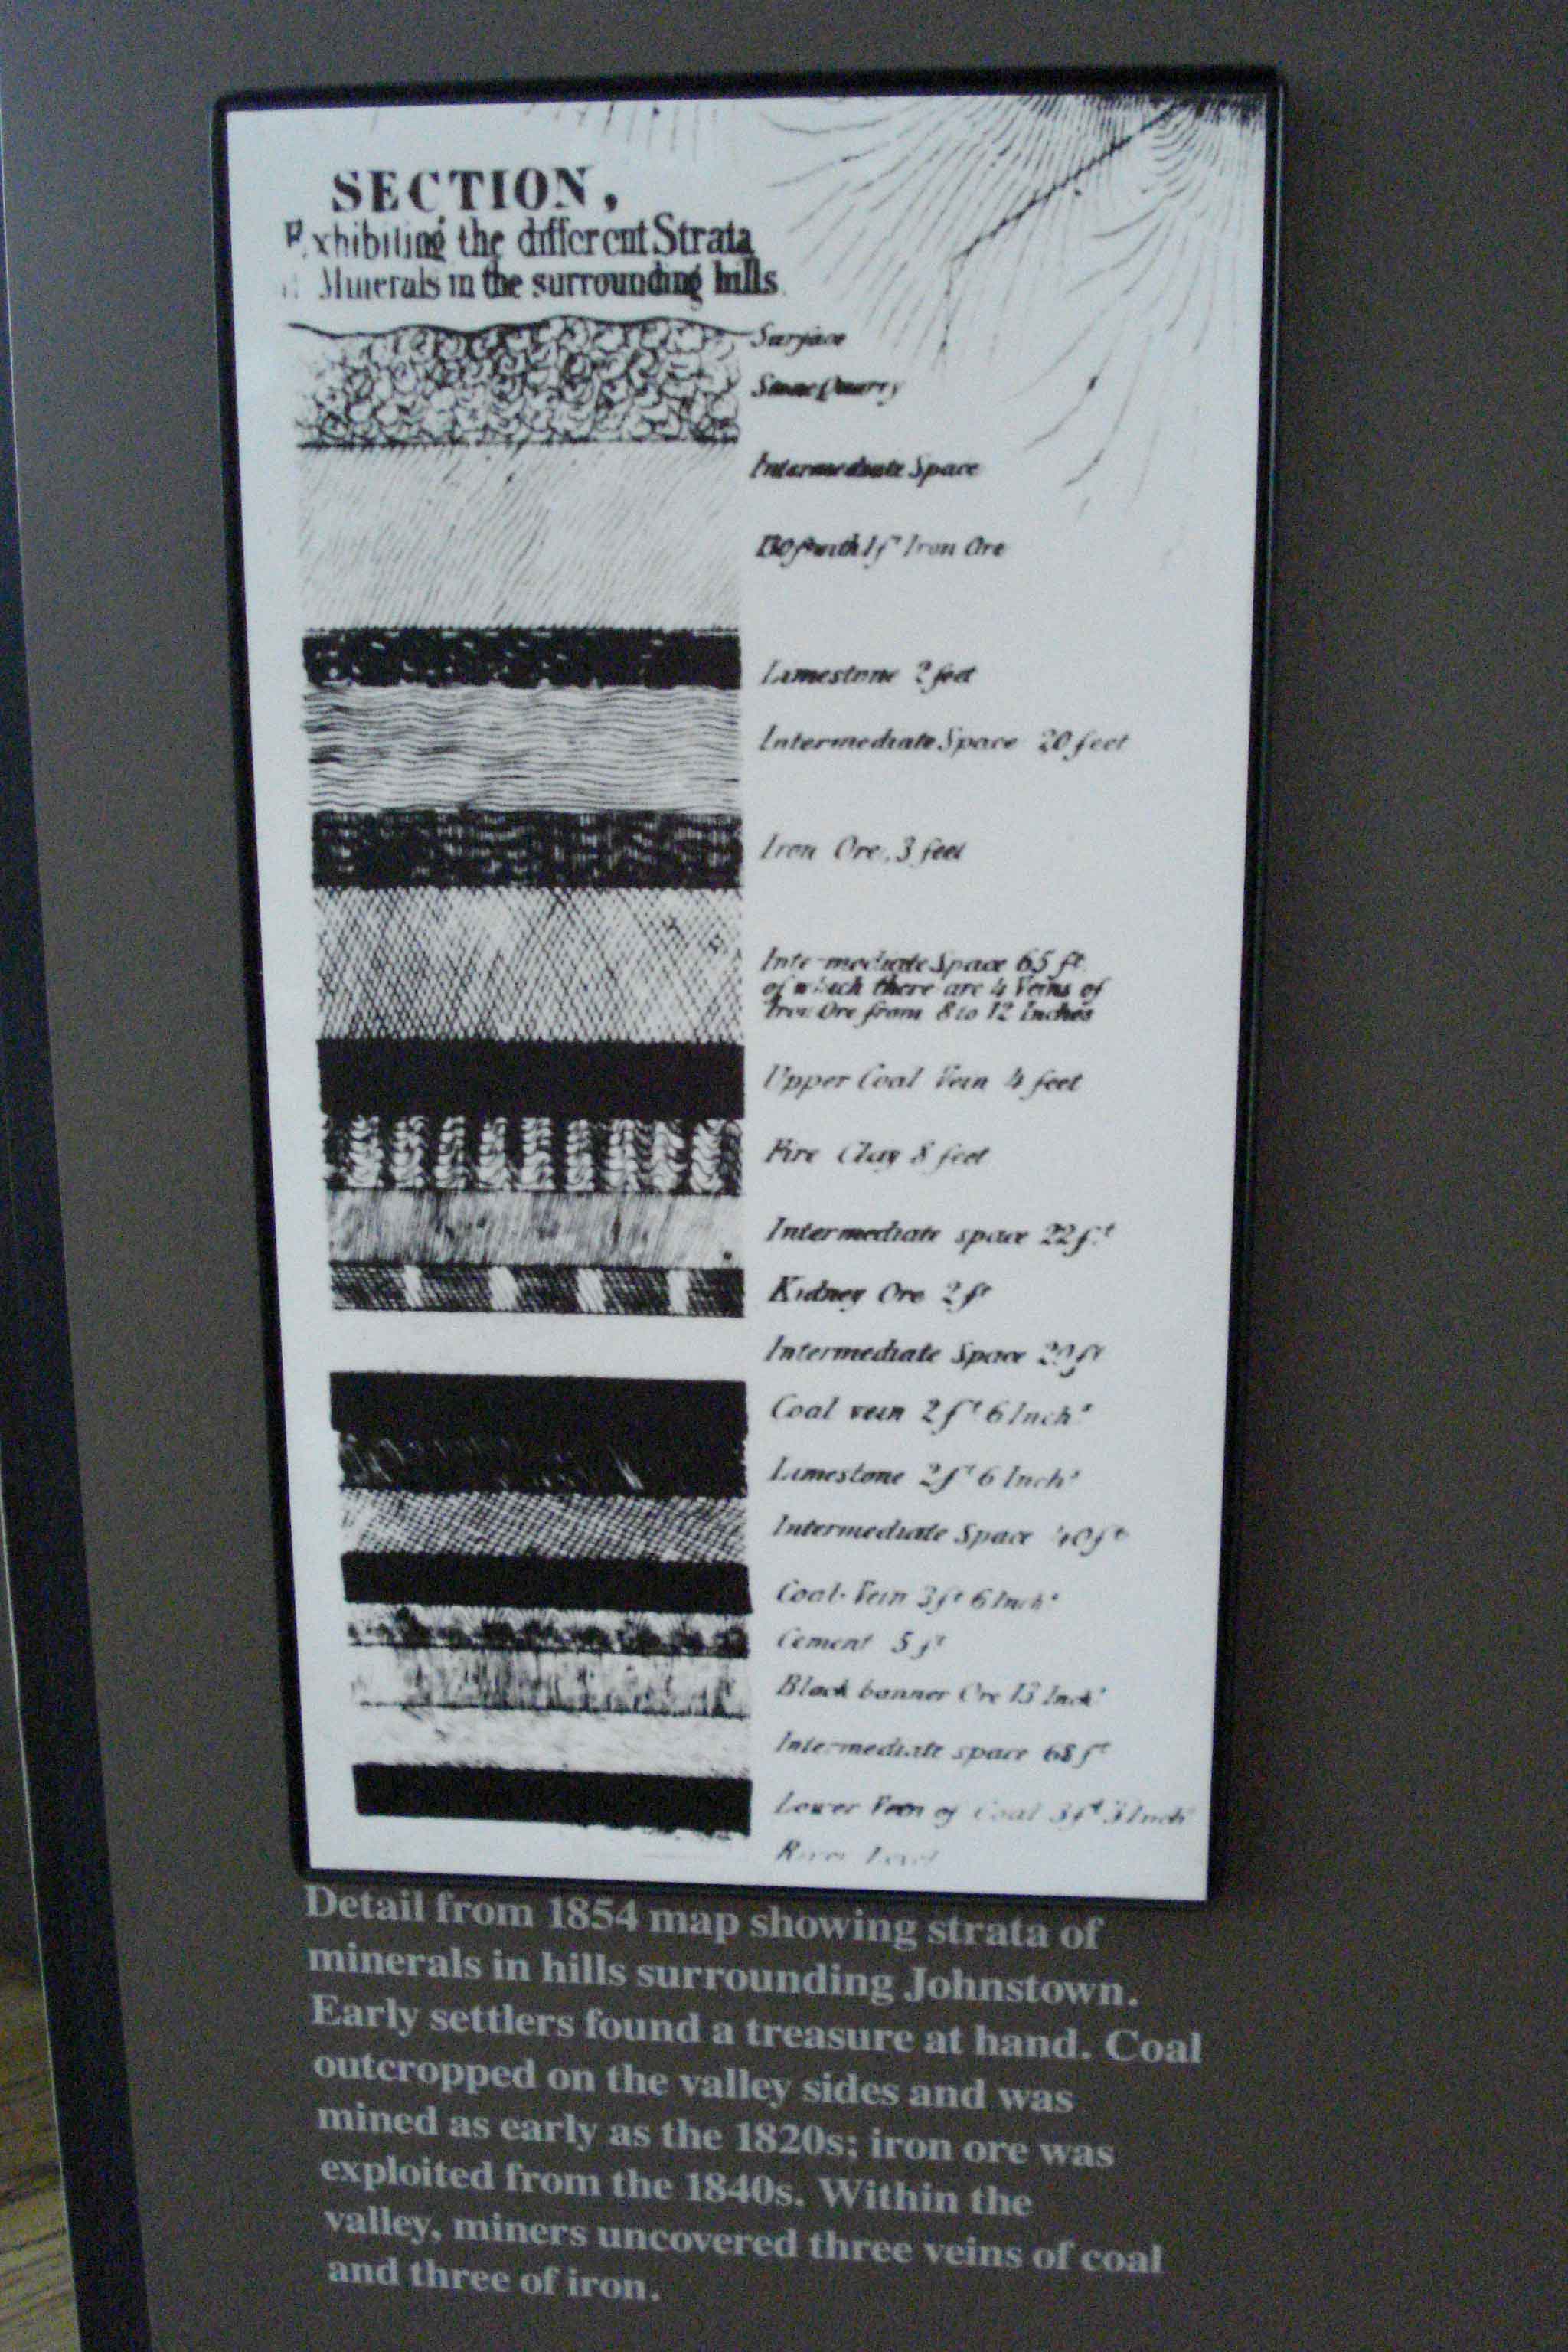 SECTION,
Exhibiting the different Strata
Minerals in the surrounding hills
Surface
Stone Quarry
Intermediate Space
130 ft with 1 ft Iron Ore
Limestone 2 feet
Intermediate Space 20 feet
Iron Ore, 3 feet
Intermediate Space 65 ft
of which there are 4 Veins of
Iron Ore from 8 to 12 Inches
Upper Coal Vein 4 feet
Fire Clay 8 feet
Intermediate space 22 ft
Kidney Ore 2 ft
Intermediate Space 20 ft
Coal vein 2 ft 6 Inchs
Limestone 2 ft 6 Inchs
Intermediate Space 40 ft
Coal Vein 3 ft 6 Inchs
Cement 5 ft
Black banner Ore 13 Inchs
Intermediate space 68 ft
Lower Vein of Coal 3 ft 3 Inchs
River Level
Detail from 1854 map showing strata of
minerals in hills surrounding Johnstown.
Early settlers found a treasure at hand. Coal
outcropped on the valley sides and was
mined as early as the 1820s; iron ore was
exploited from the 1840s. Within the
valley, miners uncovered three veins of coal
and three of iron.